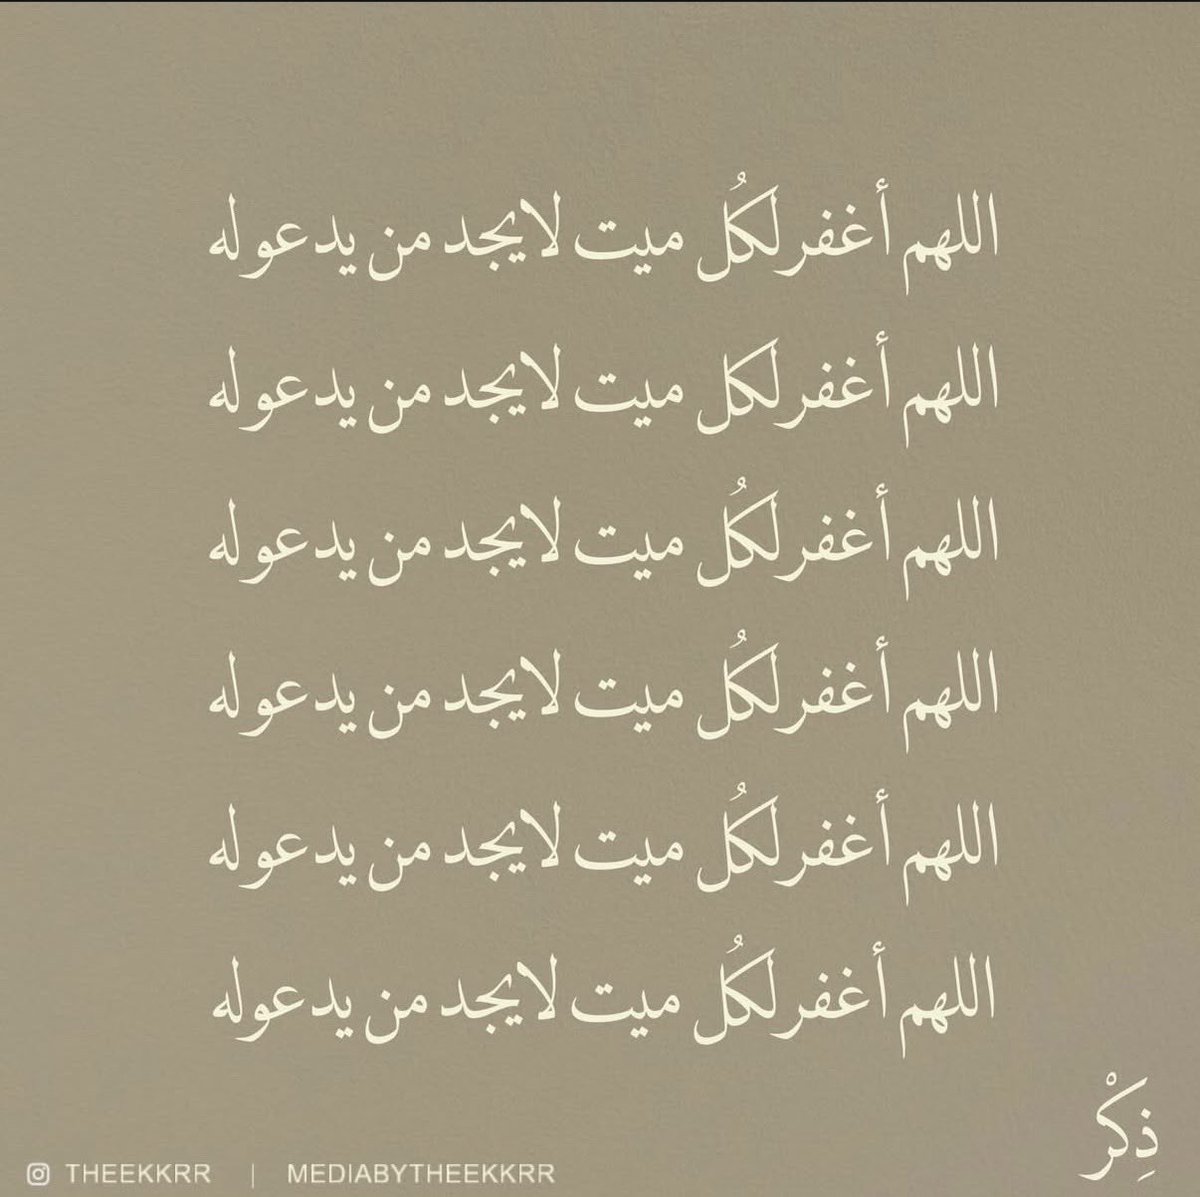 اللهم أغفر لكُل ميت لا يجد من يدعو له
اللهم أغفر لكل ميت لا يجد من يدعو له
اللهم أغفر لكُل ميت لا يجد من يدعو له
اللهم أغفر لكُل ميت لا يجد من يدعو له
اللهم أغفر لكُل ميت لا يجد من يدعو له
اللهم أغفر لكُل ميت لا يجد من يدعو له
ذِكْر
THEEKKRR | MEDIABYTHEEKKRR